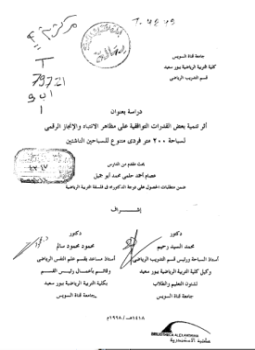 جامعة قناة السويس
كلية التربية الرياضية ببور سعيد
قسم التدريب الرياضى
دراسة بعنوان
أثر تنمية بعض القدرات التوافقية على مظاهر الانتباه والإنجاز الرقمى
لسباحة ٢٠٠ متر فردى متنوع للسباحين الناشئين
بحث مقدم من الدارس
عصام أحمد حلمى محمد أبو جميل
ضمن متطلبات الحصول على درجة الدكتوراه فى فلسفة التربية الرياضية
إشراف
دكتور
محمد السيد رحيم
أستاذ السباحة ورئيس قسم التدريب الرياضى
وكيل كلية التربية الرياضية ببور سعيد
لشئون التعليم والطلاب
جامعة قناة السويس
دكتور
محمود محمود سالم
أستاذ مساعد بقسم علم النفس الرياضى
وقائم بأعمال رئيس القسم
بكلية التربية الرياضية ببور سعيد
جامعة قناة السويس
١٤١٨هـ/١٩٩٨م
BIBLIOTHECA ALEXANDRINA
مكتبة الإسكندرية